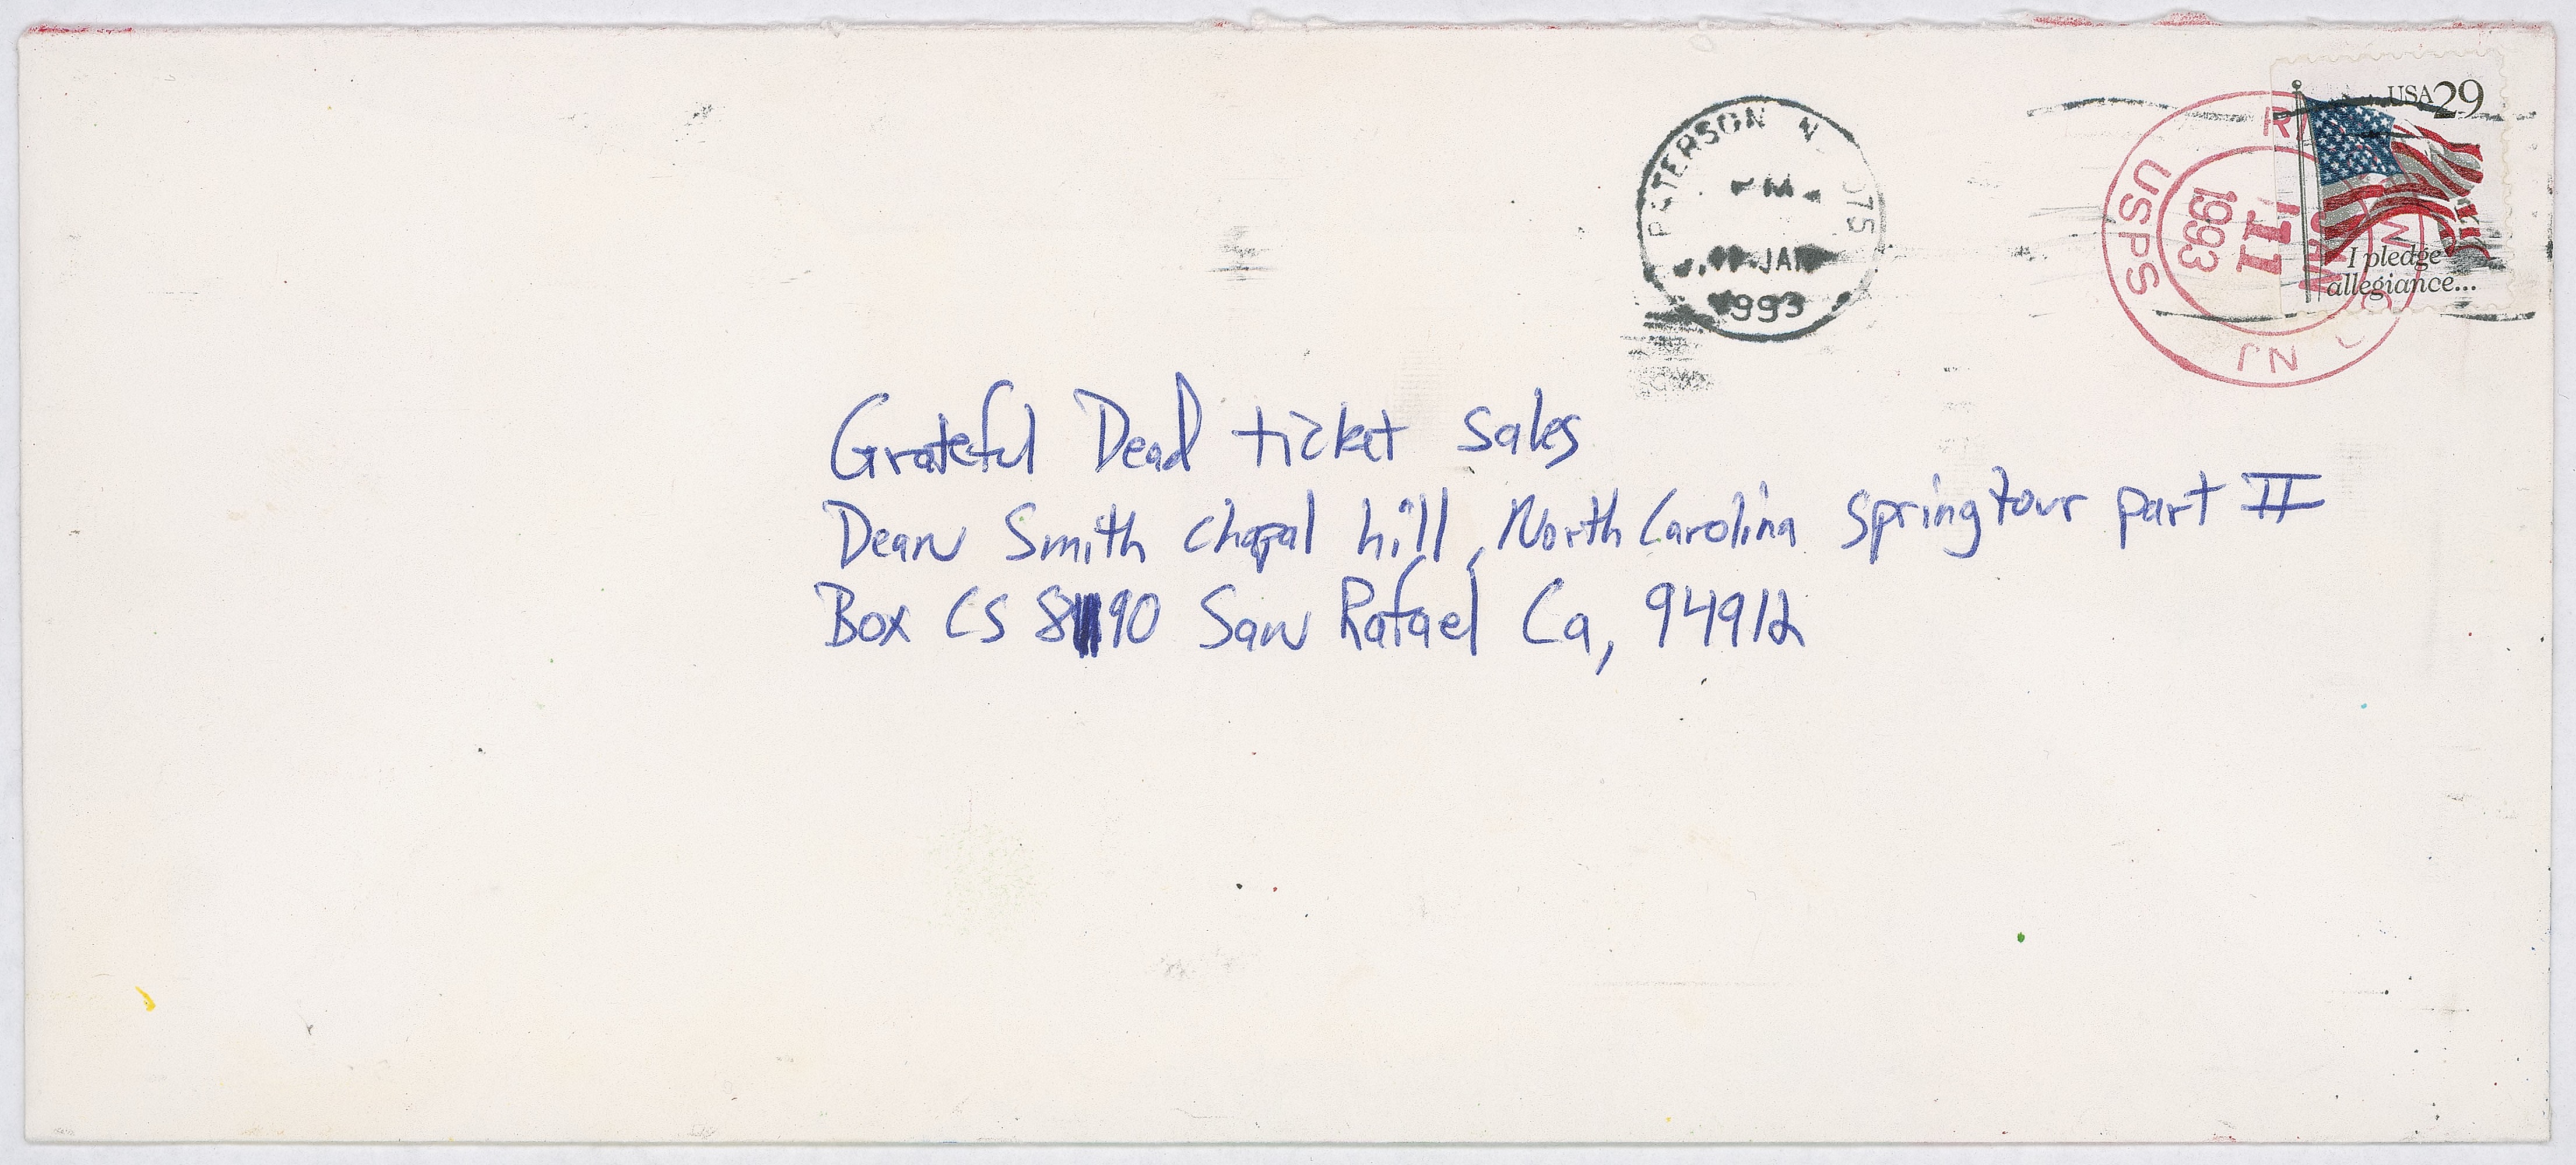 USA 29
I pledge
allegiance...
PATERSON N 075
PM
JAN
1993
USPS
NJ
JAN
11
1993
Grateful Dead ticket sales
Dean Smith chapal hill, North Carolina Spring tour part II
Box CS 8190 San Rafael Ca, 94912